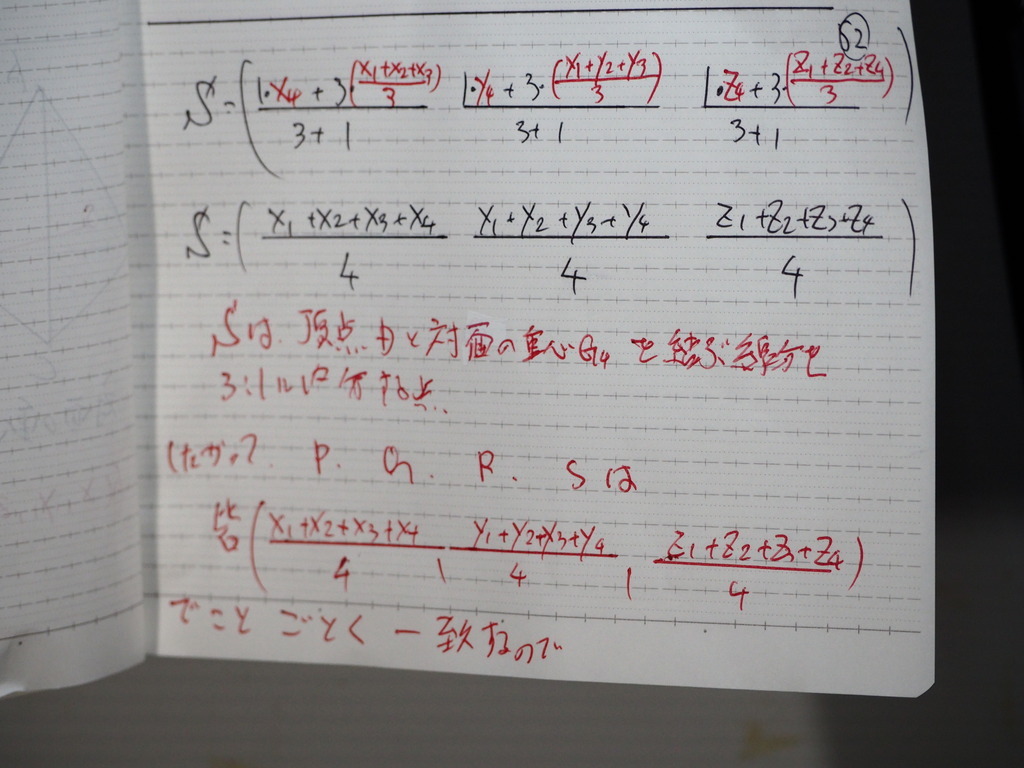 52
S=(1・x4+3・(x1+x2+x3)/3 / 3+1  1・y4+3・(y1+y2+y3)/3 / 3+1  1・z4+3・(z1+z2+z4)/3 / 3+1)
S=(x1+x2+x3+x4 / 4  y1+y2+y3+y4 / 4  z1+z2+z3+z4 / 4)
Sは、頂点Dと対面の重心G4を結ぶ線分を
3:1に内分する点.
したがって. P. Q. R. Sは
皆(x1+x2+x3+x4 / 4, y1+y2+y3+y4 / 4, z1+z2+z3+z4 / 4)
でことごとく一致するので